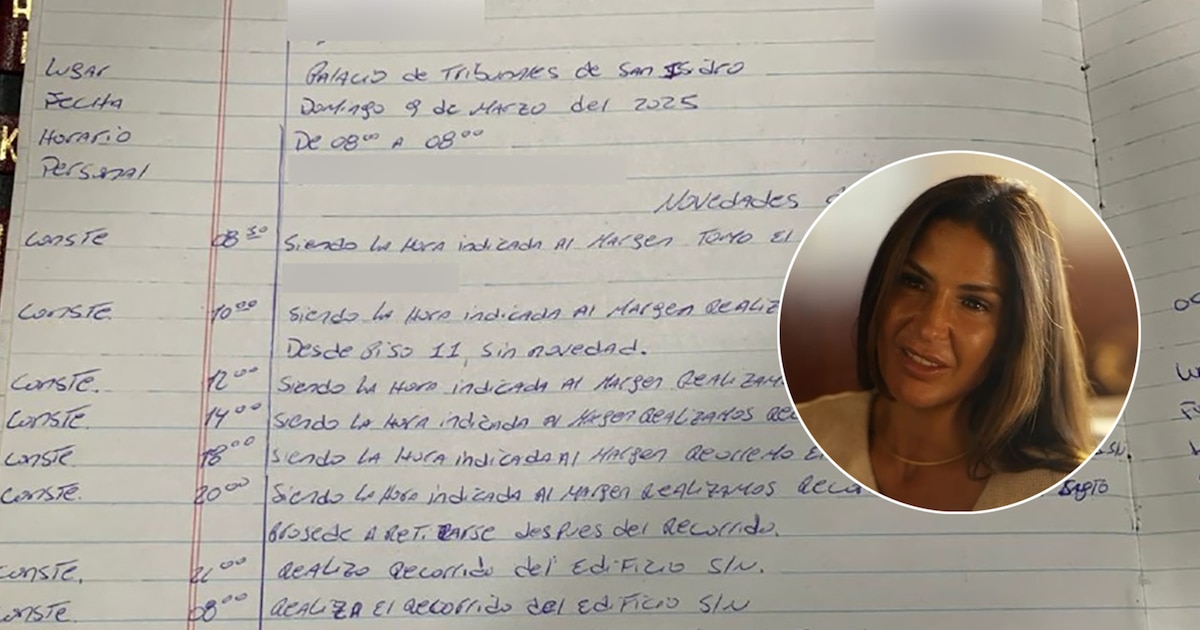 Lugar Palacio de Tribunales de San Isidro
Fecha Domingo 9 de Marzo del 2025
Horario De 08⁰⁰ A 08⁰⁰
Personal
Novedades
Conste 08³⁰ Siendo la Hora indicada Al Margen Tomo El
Conste. 10⁰⁰ Siendo la Hora indicada Al Margen
Desde Piso 11, sin novedad.
Conste. 12⁰⁰ Siendo la Hora indicada Al Margen
Conste. 14⁰⁰ Siendo la Hora indicada Al Margen Realizamos
Conste. 18⁰⁰ Siendo la Hora indicada Al Margen
Conste. 20⁰⁰ Siendo la Hora indicada Al Margen Realizamos
Prosede A Retirarse despues del recorrido.
Conste. Realizo Recorrido del Edifizio S/N.
Conste. 08⁰⁰ Realiza El Recorrido del Edificio S/N